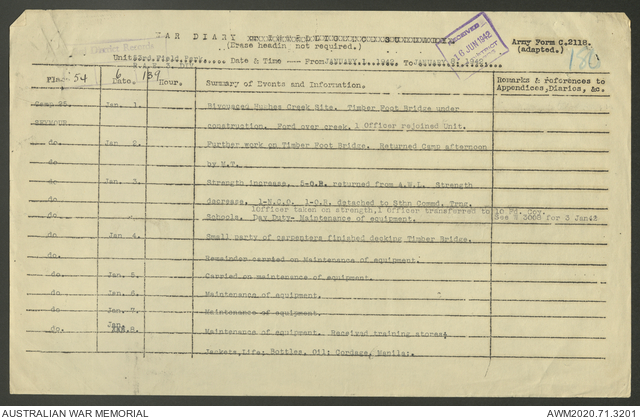 WAR DIARY
(Erase heading not required.)
RECEIVED
16 JUN 1942
Army Form C.2118.
(adapted.)
District Records
Unit 53rd Field Park. Date & Time ---- From JANUARY 1. 1942. To JANUARY 8. 1942.
Place 54 Date. 6 139 Hour. Summary of Events and Information. Remarks & references to
Appendices, Diaries, &c.
Camp 26. Jan. 1. Bivouaced Hughes Creek Site. Timber Foot Bridge under
SEYMOUR construction. Ford over creek, 1 Officer rejoined Unit.
do Jan 2. Further work on Timber Foot Bridge. Returned Camp afternoon
do by M.T.
do Jan. 3. Strength increase, 5-O.R. returned from A.W.L. Strength
do decrease, 1-N.C.O. 1-O.R. detached to Sthn Commd. Trng.
1Officer taken on strength,1 Officer transferred to 10 Fd. Coy.
do. Schools. Day Duty- Maintenance of equipment. See E 3008 for 3 Jan42
do Jan 4. Small party of carpenters finished decking Timber Bridge.
do. Remainder carried on Maintenance of equipment.
do Jan. 5. Carried on maintenance of equipment.
do Jan. 6. Maintenance of equipment.
do Jan. 7. Maintenance of equipment.
Jan.
do. 8. Maintenance of equipment. Received training stores;
Jackets,Life; Bottles, Oil; Cordage, Manila;
AUSTRALIAN WAR MEMORIAL AWM2020.71.3201